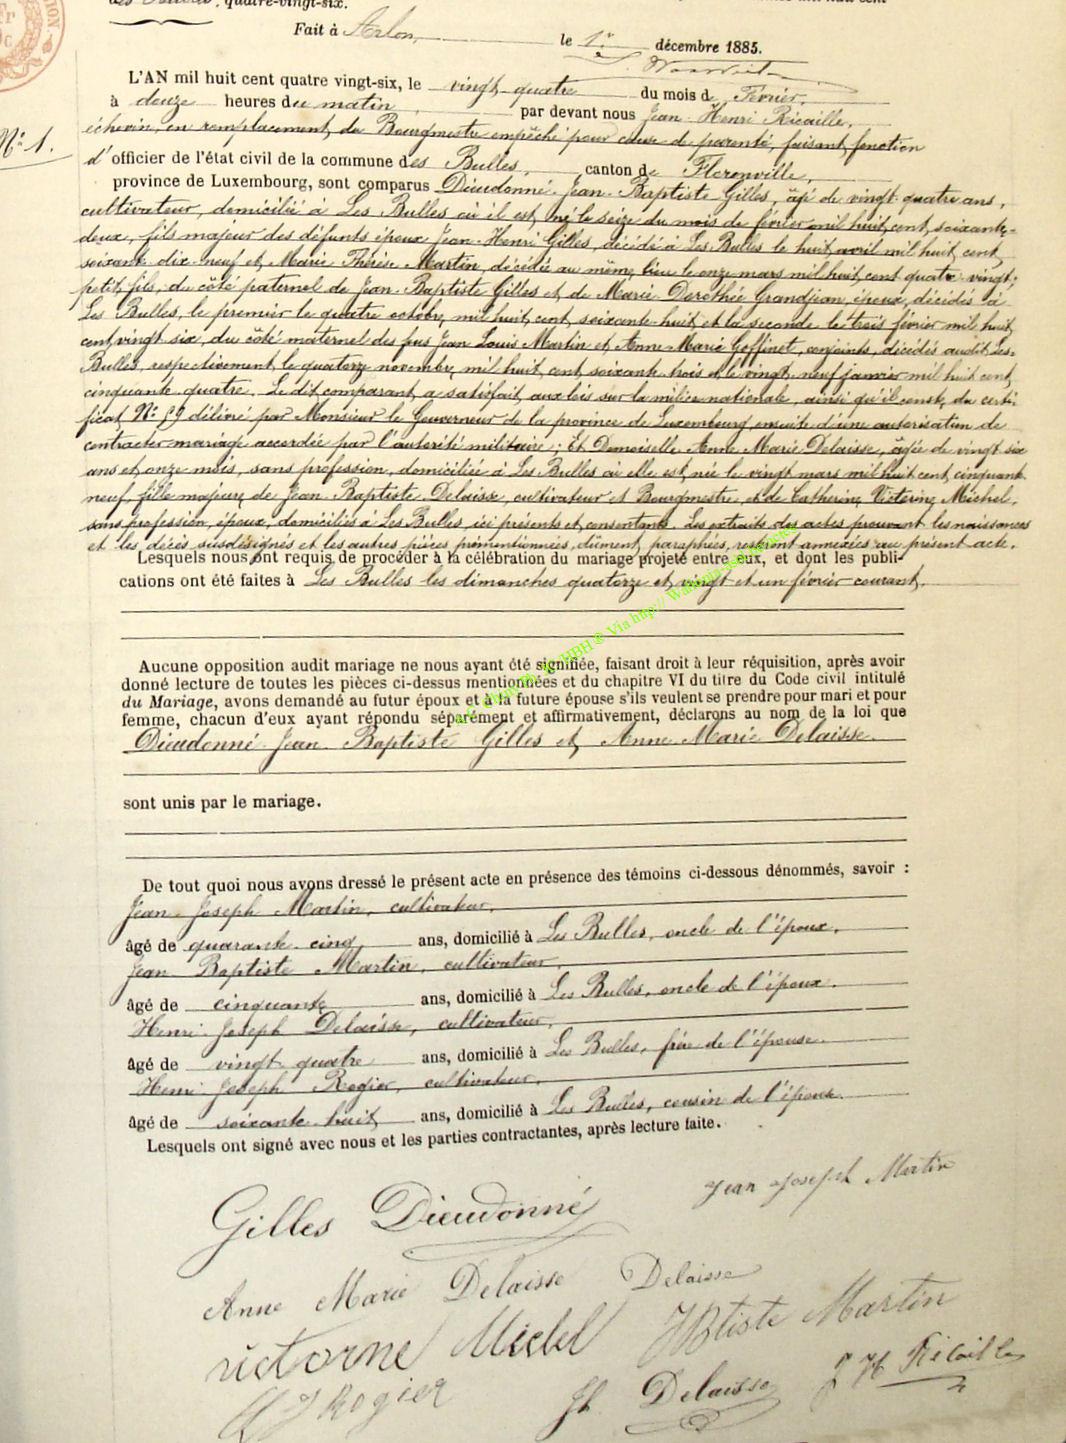 quatre-vingt-six.
Fait à Arlon, le 1er décembre 1885.
L'AN mil huit cent quatre vingt-six, le vingt-quatre du mois de Février,
à douze heures du matin par devant nous Jean-Henri Ricaille,
N° 1.
échevin, en remplacement du Bourgmestre empêché pour cause de parenté, faisant fonction
d'officier de l'état civil de la commune des Bulles, canton de Florenville,
province de Luxembourg, sont comparus Dieudonné Jean-Baptiste Gilles, âgé de vingt-quatre ans,
cultivateur, domicilié à Les Bulles où il est né le seize du mois de février mil huit cent soixante-
deux, fils majeur des défunts époux Jean-Henri Gilles, décédé à Les Bulles le huit avril mil huit cent
soixante-dix-neuf et Marie Thérèse Martin, décédée au même lieu le onze mars mil huit cent quatre-vingt;
petit-fils, du côté paternel de Jean-Baptiste Gilles et de Marie Dorothée Grandjean, époux, décédés à
Les Bulles, le premier le quatre octobre mil huit cent soixante-huit et la seconde le trois février mil huit
cent vingt six, du côté maternel des feus Jean Louis Martin et Anne-Marie Goffinet, conjoints, décédés audit Les-
Bulles, respectivement le quatorze novembre mil huit cent soixante trois et le vingt-neuf janvier mil huit cent
cinquante-quatre. Le dit comparant a satisfait aux lois sur la milice nationale, ainsi qu'il conste du certi-
ficat N° délivré par Monsieur le Gouverneur de la province de Luxembourg ensuite d'une autorisation de
contracter mariage accordée par l'autorité militaire; Et Demoiselle Anne Marie Delaisse, âgée de vingt-six
ans et onze mois, sans profession, domiciliée à Les Bulles où elle est née le vingt mars mil huit cent cinquante
neuf, fille majeure de Jean Baptiste Delaisse, cultivateur et Bourgmestre et de Catherine Victorine Michel,
sans profession, époux, domiciliés à Les Bulles, ici présents et consentants. Les extraits des actes prouvant les naissances
et les décès susdésignés et les autres pièces prémentionnées, dûment paraphées, resteront annexées au présent acte.
Lesquels nous ont requis de procéder à la célébration du mariage projeté entre eux, et dont les publi-
cations ont été faites à Les Bulles les dimanches quatorze et vingt et un février courant.
Via http://
Aucune opposition audit mariage ne nous ayant été signifiée, faisant droit à leur réquisition, après avoir
donné lecture de toutes les pièces ci-dessus mentionnées et du chapitre VI du titre du Code civil intitulé
du Mariage, avons demandé au futur époux et à la future épouse s'ils veulent se prendre pour mari et pour
femme, chacun d'eux ayant répondu séparément et affirmativement, déclarons au nom de la loi que
Dieudonné Jean Baptiste Gilles et Anne-Marie Delaisse.
sont unis par le mariage.
De tout quoi nous avons dressé le présent acte en présence des témoins ci-dessous dénommés, savoir :
Jean-Joseph Martin, cultivateur,
âgé de quarante-cinq ans, domicilié à Les Bulles, oncle de l'époux,
Jean Baptiste Martin, cultivateur,
âgé de cinquante ans, domicilié à Les Bulles, oncle de l'époux.
Henri-Joseph Delaisse, cultivateur,
âgé de vingt-quatre ans, domicilié à Les Bulles, frère de l'épouse.
Henri-Joseph Rogier, cultivateur,
âgé de soixante-huit ans, domicilié à Les Bulles, cousin de l'épouse.
Lesquels ont signé avec nous et les parties contractantes, après lecture faite.
Gilles Dieudonné
Jean Joseph Martin
Anne Marie Delaisse
Delaisse
victorne Michel
JBtiste Martin
Rogier
JH Ricaille
Delaisse